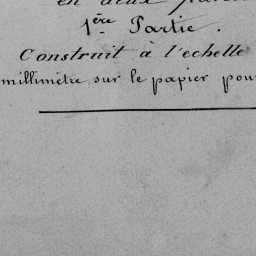 en deux
1ère Partie.
Construit à l'echelle
millimètre sur le papier pour